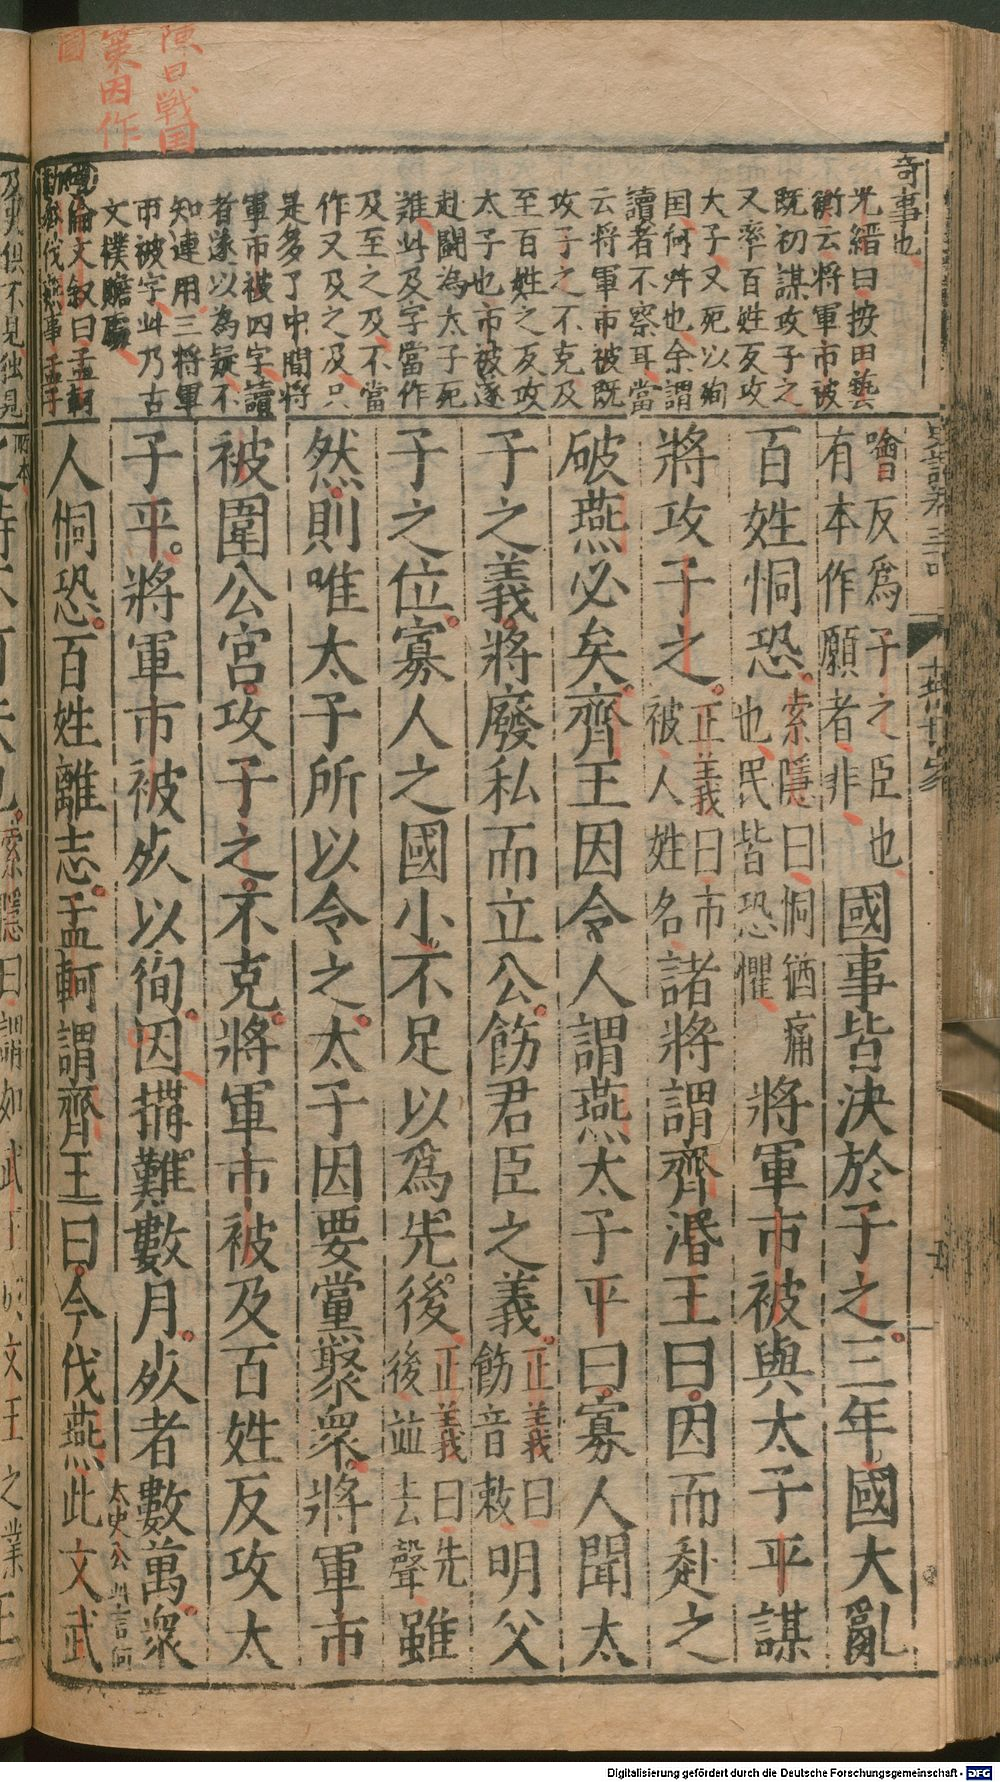 陳曰戦国
策因作
圖
奇事也
光縉曰按田藝
衡云將軍市被
既初謀攻子之
又率百姓反攻
大子又死以殉
囯何㪽也余謂
讀者不察耳當
云将軍市被既
攻子之不克及
至百姓之反攻
太子也市被遂
赴闘為太子死
難此及字當作
及至之及不當
作又及之及只
是多了中間将
軍市被四字讀
者遂以為疑不
知連用三将軍
市被字此乃古
文樸贍處
噲反爲子之臣也
有本作願者非
國事皆決於子之三年國大亂
百姓恫恐
索隱曰恫猶痛
也民皆恐懼
將軍市被與太子平謀
將攻子之
正義曰市
被人姓名
諸將謂齊湣王曰因而赴之
破燕必矣齊王因令人謂燕太子平曰寡人聞太
子之義將廢私而立公飭君臣之義
正義曰
飭音敕
明父
子之位寡人之國小不足以爲先後
正義曰先
後並去聲
雖
然則唯太子所以令之太子因要黨聚衆將軍市
被圍公宮攻子之不克將軍市被及百姓反攻太
子平將軍市被死以徇因搆難數月死者數萬衆
人恫恐百姓離志孟軻謂齊王曰今伐燕此文武
索隱曰謂如武王成文王之業
Digitalisierung gefördert durch die Deutsche Forschungsgemeinschaft - DFG